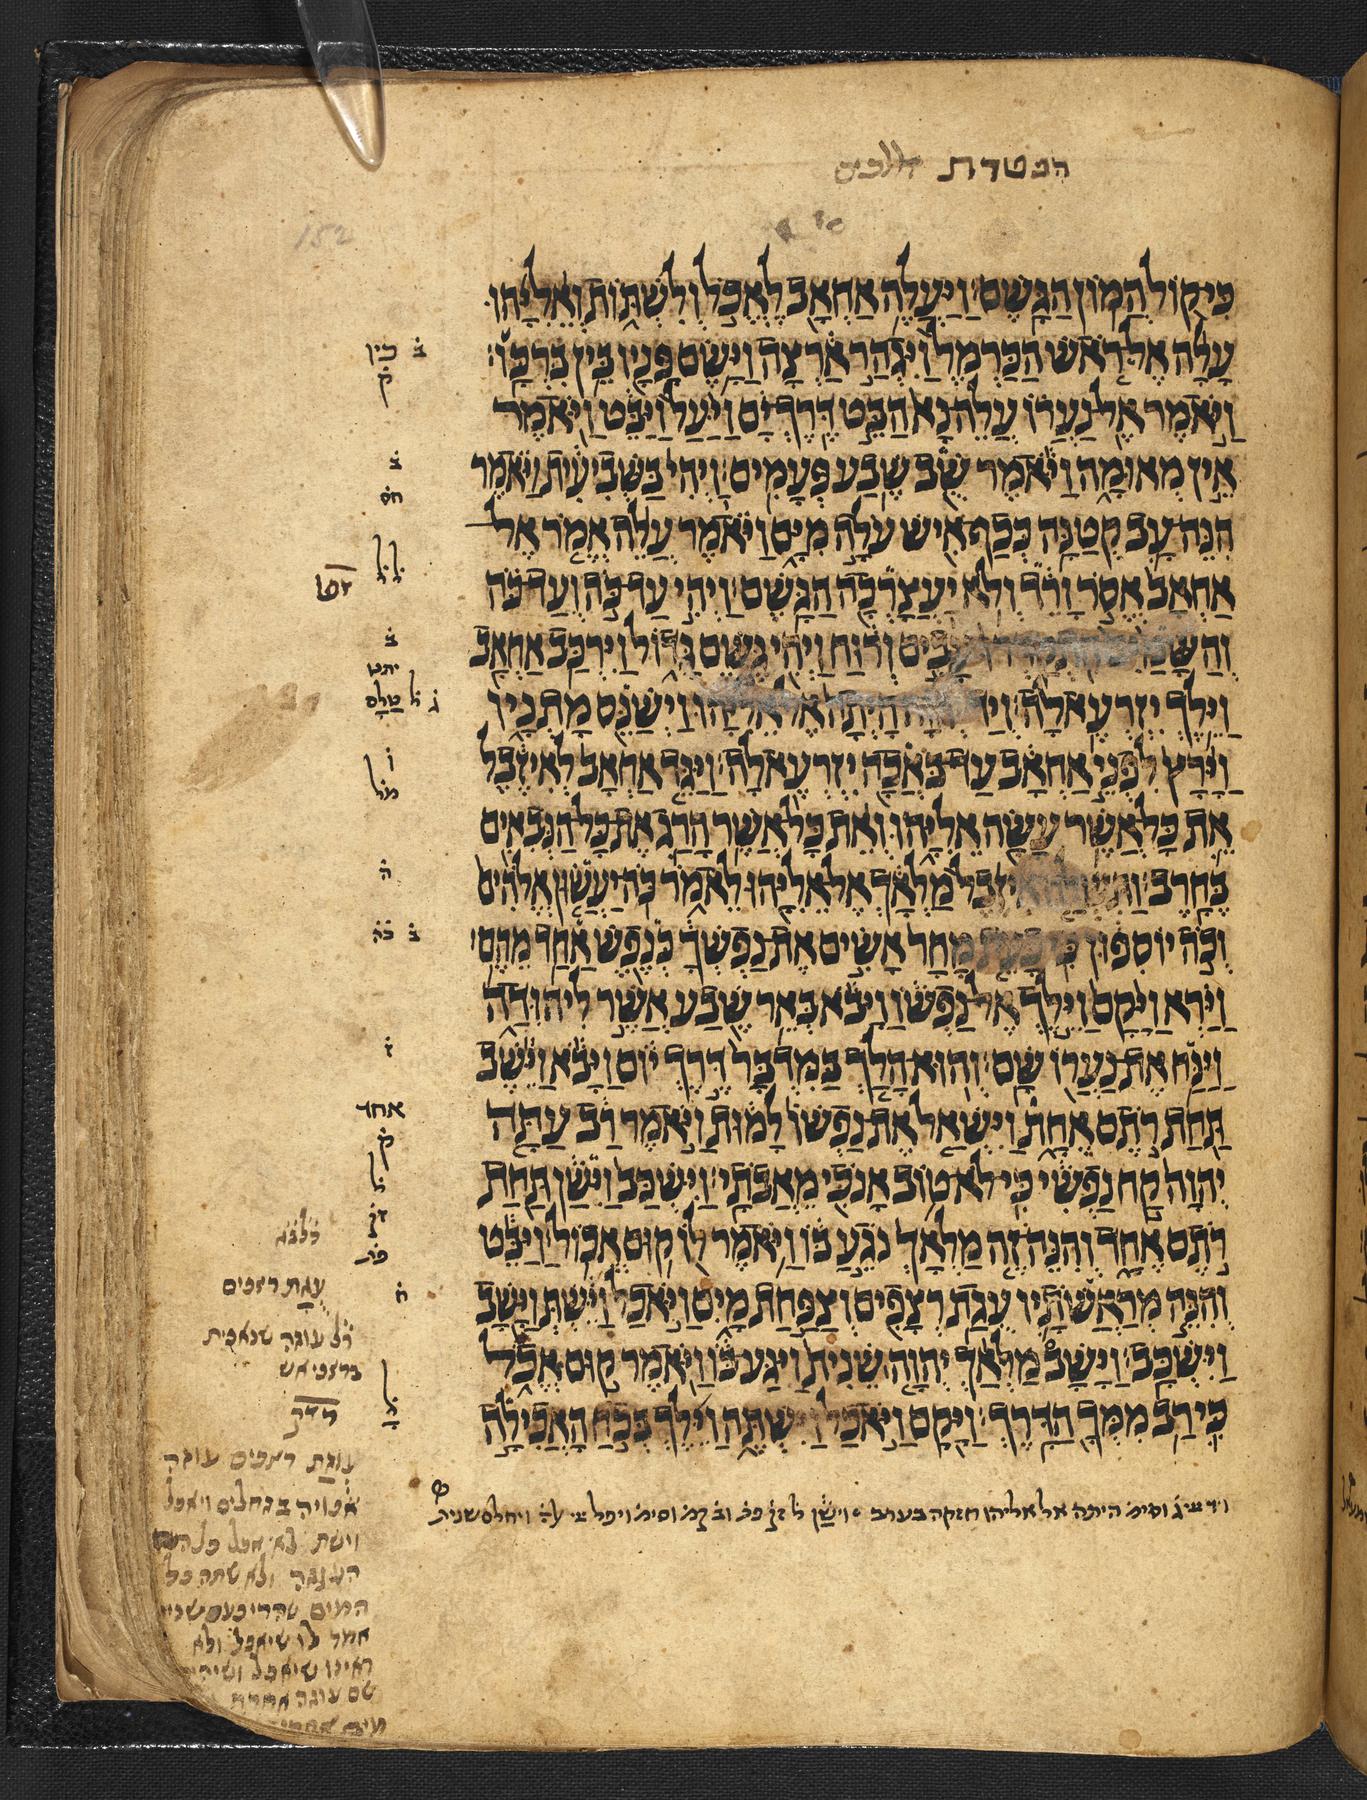 הפטרת מלכים
152
כִּי־קוֹל הֲמוֹן הַגָּשֶׁם׃ וַיַּעֲלֶה אַחְאָב לֶאֱכֹל וְלִשְׁתּוֹת וְאֵלִיָּהוּ
עָלָה אֶל־רֹאשׁ הַכַּרְמֶל וַיִּגְהַר אַרְצָה וַיָּשֶׂם פָּנָיו בֵּין בִּרְכָּו׃
וַיֹּאמֶר אֶל־נַעֲרוֹ עֲלֵה־נָא הַבֵּט דֶּרֶךְ־יָם וַיַּעַל וַיַּבֵּט וַיֹּאמֶר
אֵין מְאוּמָה וַיֹּאמֶר שֻׁב שֶׁבַע פְּעָמִים׃ וַיְהִי בַּשְּׁבִעִית וַיֹּאמֶר
הִנֵּה־עָב קְטַנָּה כְּכַף־אִישׁ עֹלָה מִיָּם וַיֹּאמֶר עֲלֵה אֱמֹר אֶל־
אַחְאָב אֱסֹר וָרֵד וְלֹא יַעֲצָרְכָה הַגָּשֶׁם׃ וַיְהִי עַד־כֹּה וְעַד־כֹּה
וְהַשָּׁמַיִם הִתְקַדְּרוּ עָבִים וְרוּחַ וַיְהִי גֶּשֶׁם גָּדוֹל וַיִּרְכַּב אַחְאָב
וַיֵּלֶךְ יִזְרְעֶאלָה׃ וְיַד יְהוָה הָיְתָה אֶל־אֵלִיָּהוּ וַיְשַׁנֵּס מָתְנָיו
וַיָּרָץ לִפְנֵי אַחְאָב עַד־בֹּאֲכָה יִזְרְעֶאלָה׃ וַיַּגֵּד אַחְאָב לְאִיזֶבֶל
אֵת כָּל־אֲשֶׁר עָשָׂה אֵלִיָּהוּ וְאֵת כָּל־אֲשֶׁר הָרַג אֶת־כָּל־הַנְּבִאִים
בֶּחָרֶב׃ וַתִּשְׁלַח אִיזֶבֶל מַלְאָךְ אֶל־אֵלִיָּהוּ לֵאמֹר כֹּה־יַעֲשׂוּן אֱלֹהִים
וְכֹה יוֹסִפוּן כִּי־כָעֵת מָחָר אָשִׂים אֶת־נַפְשְׁךָ כְּנֶפֶשׁ אַחַד מֵהֶם׃
וַיַּרְא וַיָּקָם וַיֵּלֶךְ אֶל־נַפְשׁוֹ וַיָּבֹא בְּאֵר שֶׁבַע אֲשֶׁר לִיהוּדָה
וַיַּנַּח אֶת־נַעֲרוֹ שָׁם׃ וְהוּא־הָלַךְ בַּמִּדְבָּר דֶּרֶךְ יוֹם וַיָּבֹא וַיֵּשֶׁב
תַּחַת רֹתֶם אֶחָת וַיִּשְׁאַל אֶת־נַפְשׁוֹ לָמוּת וַיֹּאמֶר רַב עַתָּה
יְהוָה קַח נַפְשִׁי כִּי־לֹא־טוֹב אָנֹכִי מֵאֲבֹתָי׃ וַיִּשְׁכַּב וַיִּישַׁן תַּחַת
רֹתֶם אֶחָד וְהִנֵּה־זֶה מַלְאָךְ נֹגֵעַ בּוֹ וַיֹּאמֶר לוֹ קוּם אֱכוֹל׃ וַיַּבֵּט
וְהִנֵּה מְרַאֲשֹׁתָיו עֻגַת רְצָפִים וְצַפַּחַת מָיִם וַיֹּאכַל וַיֵּשְׁתְּ וַיָּשָׁב
וַיִּשְׁכָּב׃ וַיָּשָׁב מַלְאַךְ יְהוָה שֵׁנִית וַיִּגַּע־בּוֹ וַיֹּאמֶר קוּם אֱכֹל
כִּי רַב מִמְּךָ הַדָּרֶךְ׃ וַיָּקָם וַיֹּאכַל וַיִּשְׁתֶּה וַיֵּלֶךְ בְּכֹחַ הָאֲכִילָה
ב̇ כתי̇
ק̇
ב̇
חס̇
ל̇ ל̇
ב̇
ה̇
ב̇ כה̇
ז̇
אחר
ק̇
ל̇
ח̇
ל̇
עֻגַת רצפים
עוגה שנאפית
ברצפי אש
עוגת רצפים עוגה
אפויה בגחלים ויאכל
וישת לא אכל כל
העוגה ולא שתה כל
המים שהרי פעם
אמר לו שיאכל ולא
ראינו שיאכל
שם עוגה אחרת
היתה אל אליהו חזקה בערב